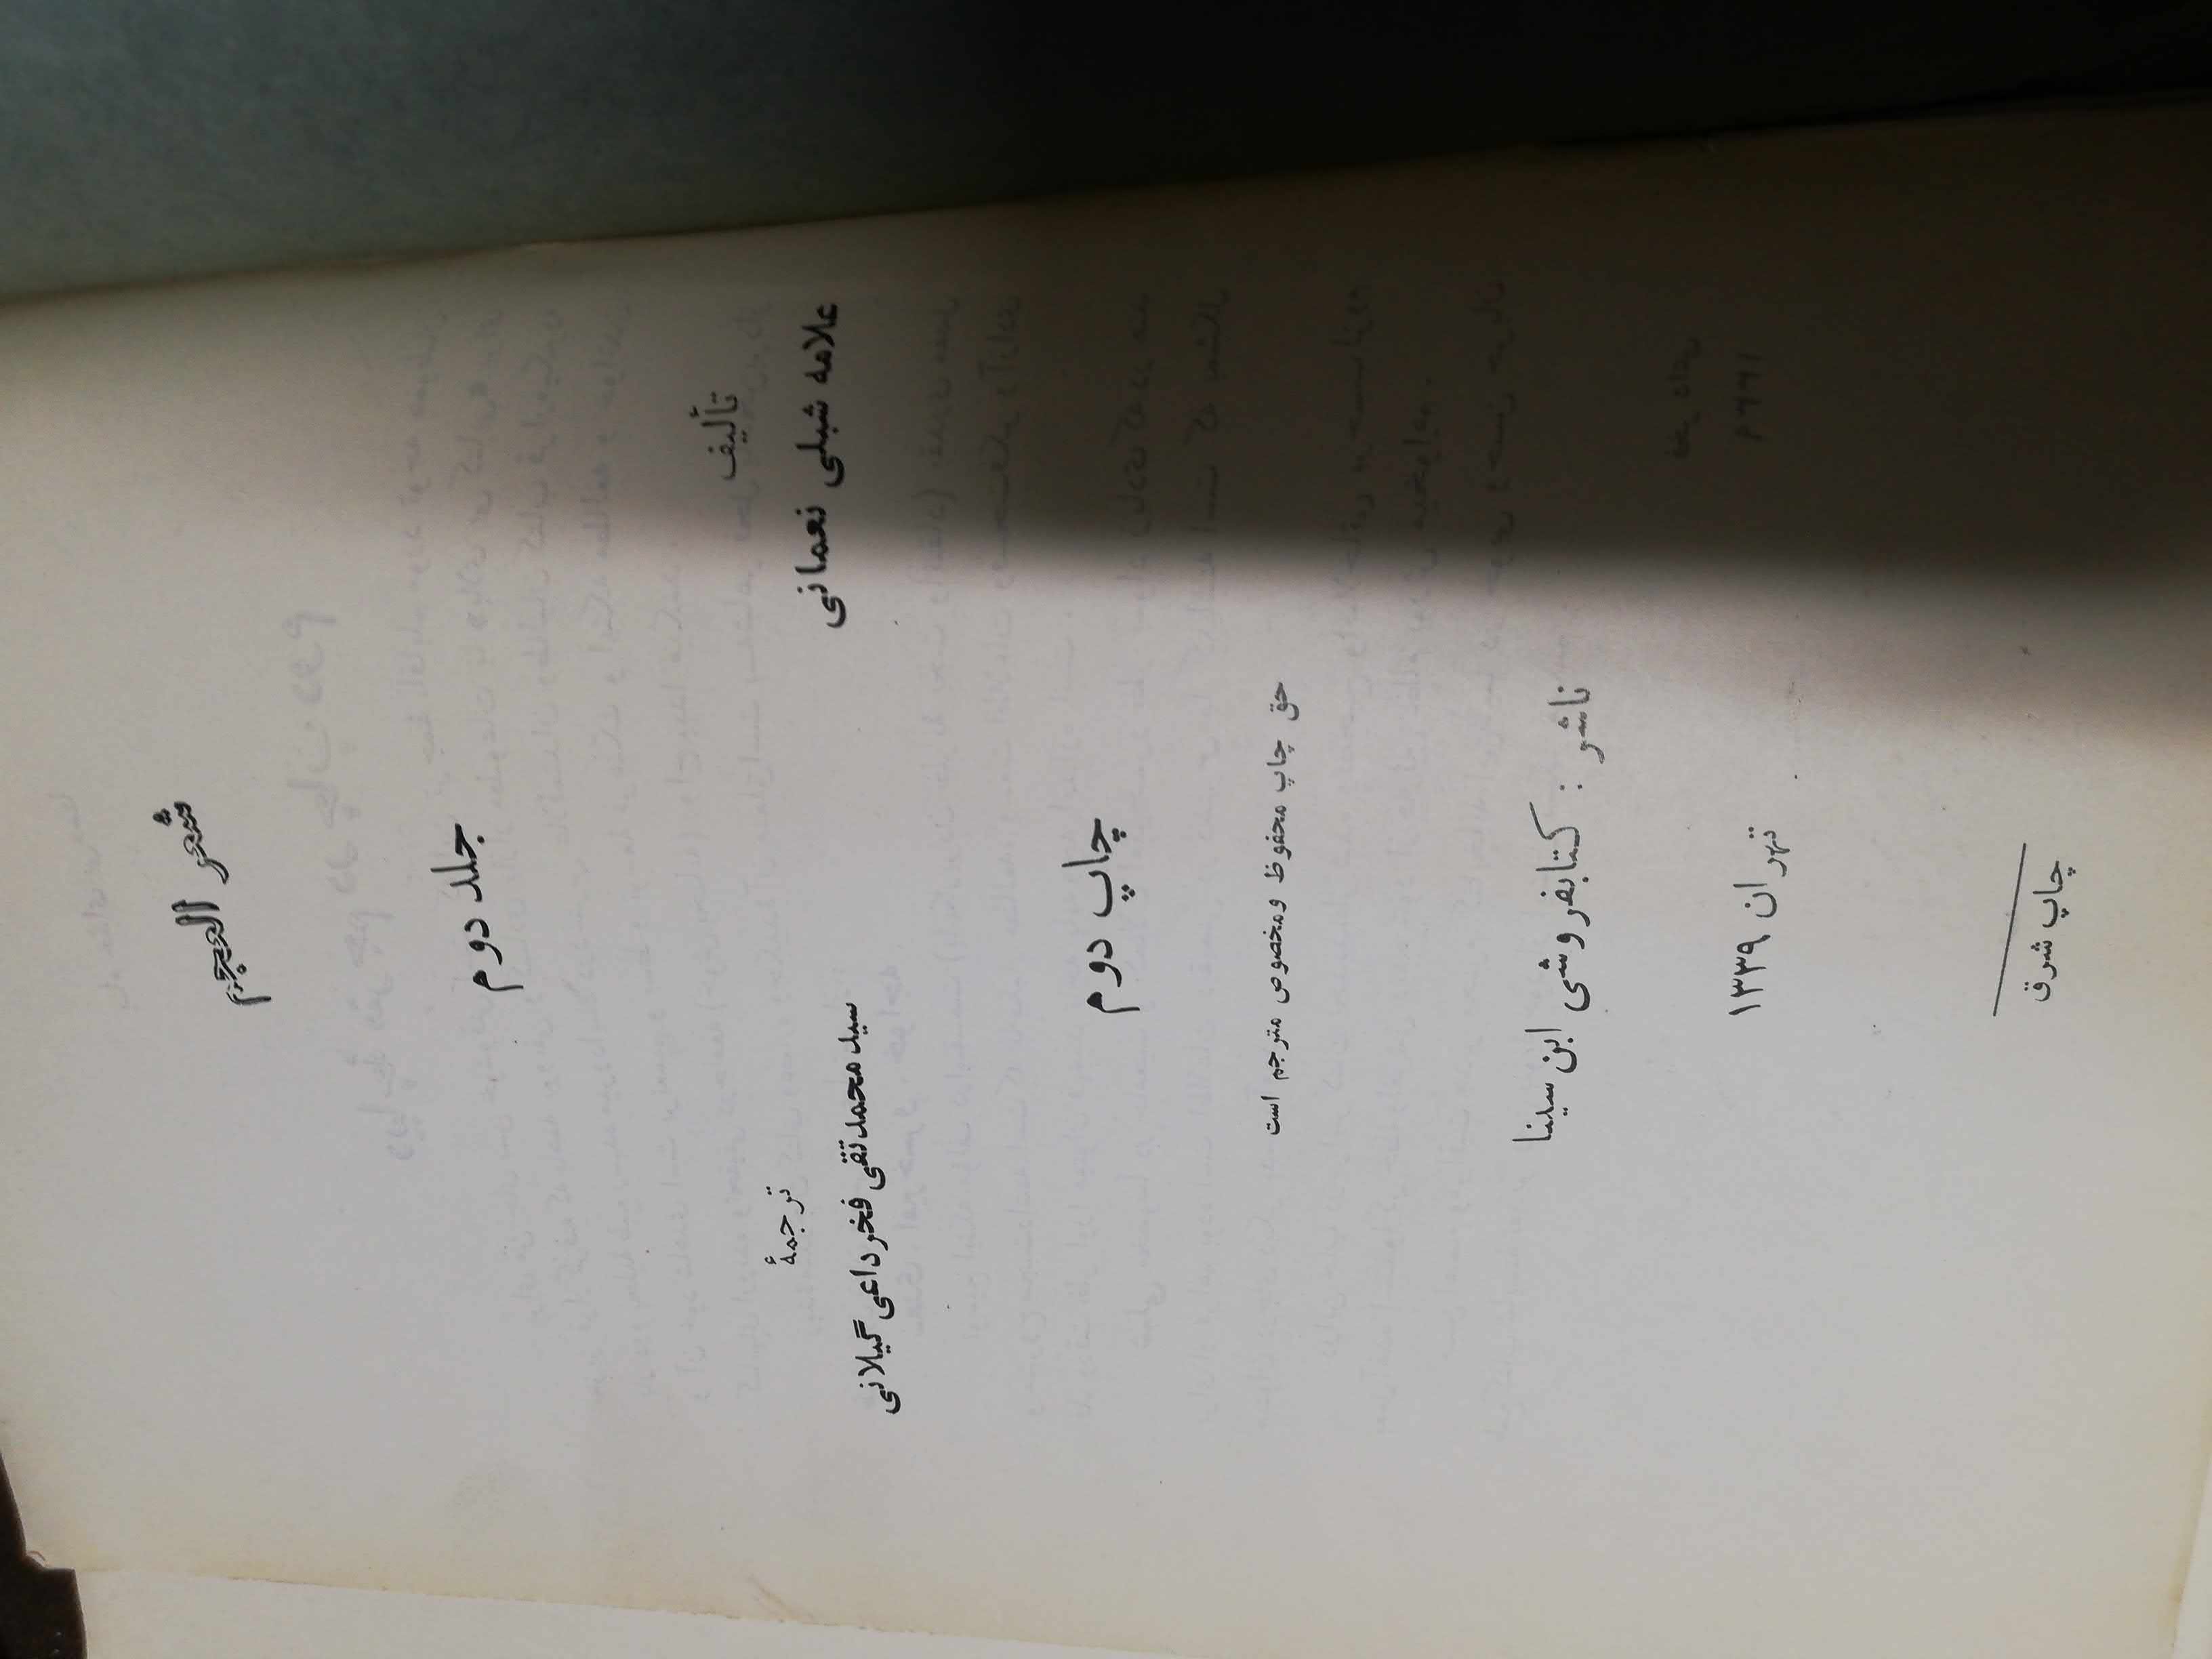 شعر العجم
جلد دوم
تألیف
علامه شبلی نعمانی
ترجمهٔ
سید محمد تقی فخر داعی گیلانی
چاپ دوم
حق چاپ محفوظ و مخصوص مترجم است
ناشر : کتابفروشی ابن سینا
تهران ۱۳۳۹
چاپ شرق